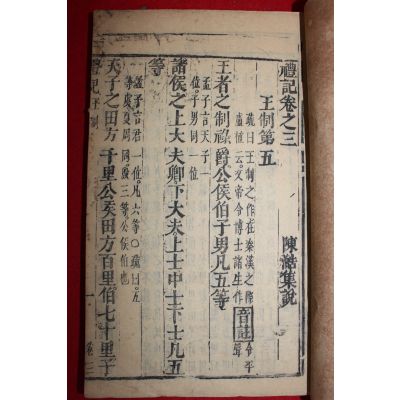 禮記卷之三
陳澔集說
王制第五
疏曰王制之作在秦漢之際
盧植云文帝令博士諸生作
音註
王者之制祿爵公侯伯子男凡五等
孟子言天子一
位子男同一位
諸侯之上大夫卿下大夫上士中士下士凡五
等
孟子言君一位凡六等○疏曰五
等虞夏周同殷三等公侯伯也
天子之田方千里公侯田方百里伯七十里子
禮記